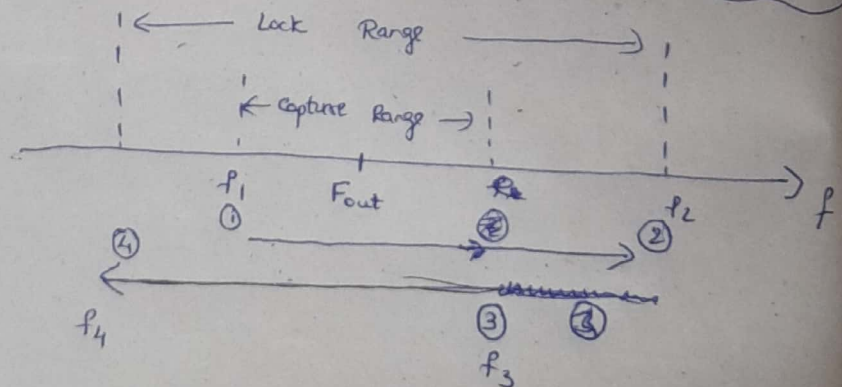 Lock Range
Capture Range
f1 Fout f2 f
① ②
④
③
f4
f3